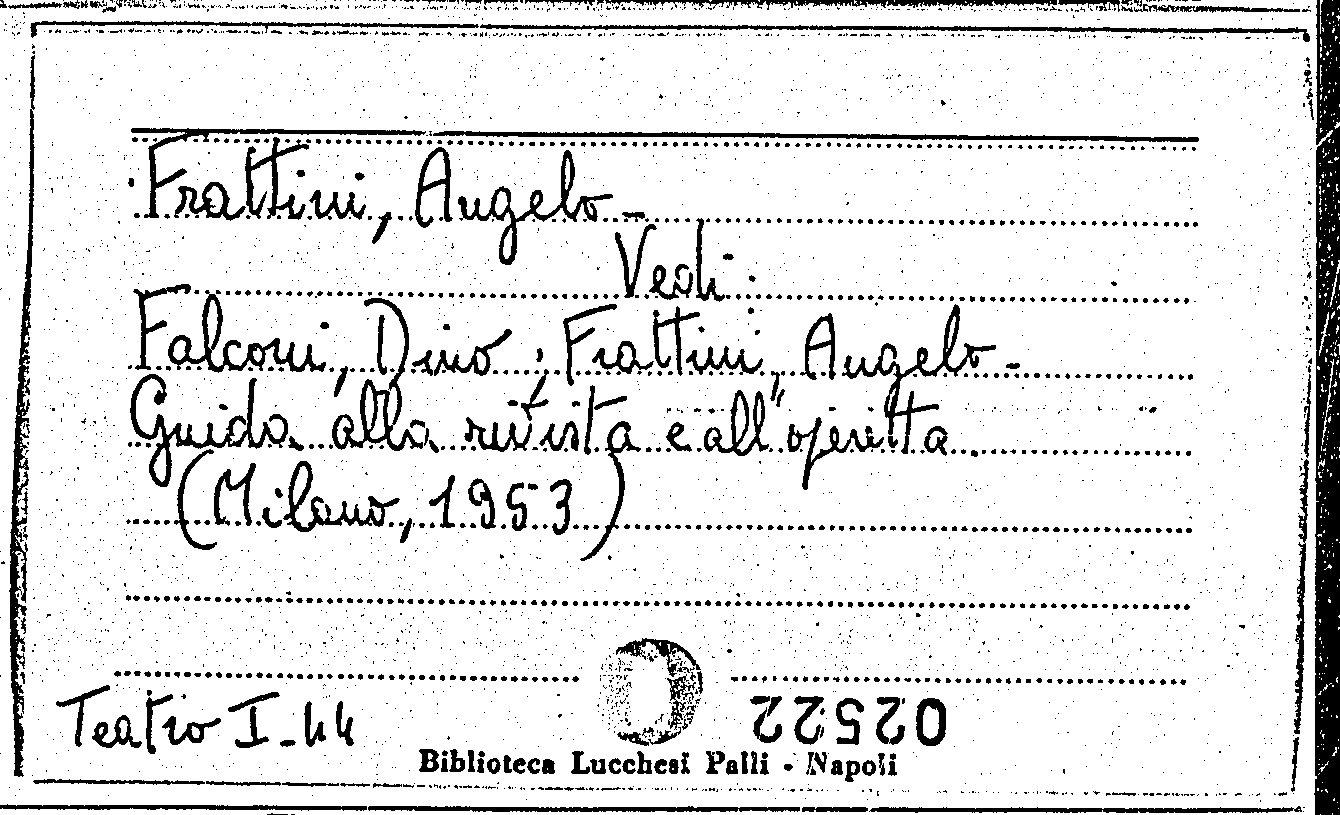 Frattini, Angelo -
Vedi:
Falconi, Dino; Frattini, Angelo -
Guida alla rivista e all'operetta.
(Milano, 1953)
Teatro I-44
02522
Biblioteca Lucchesi Palli - Napoli